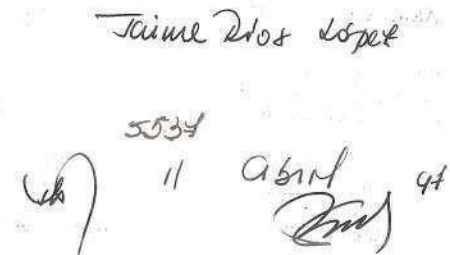 Jaime Rios López
5537
11 abril 97